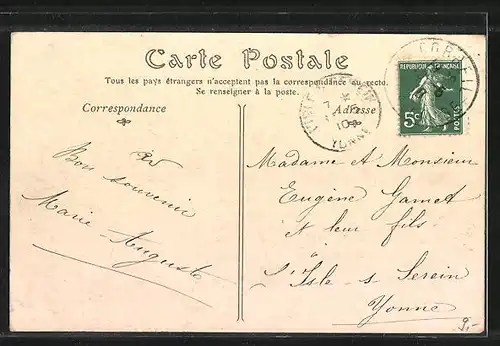 Carte Postale
Tous les pays étrangers n'acceptent pas la correspondance au recto.
Se renseigner à la poste.
Correspondance
Adresse
REPUBLIQUE FRANÇAISE
5c
POSTES
CORBEIL
YONNE
10
Bon souvenir
Marie-Auguste
Madame et Monsieur
Eugène Gamet
et leur fils
à
l'Isle s Serein
Yonne
9,-